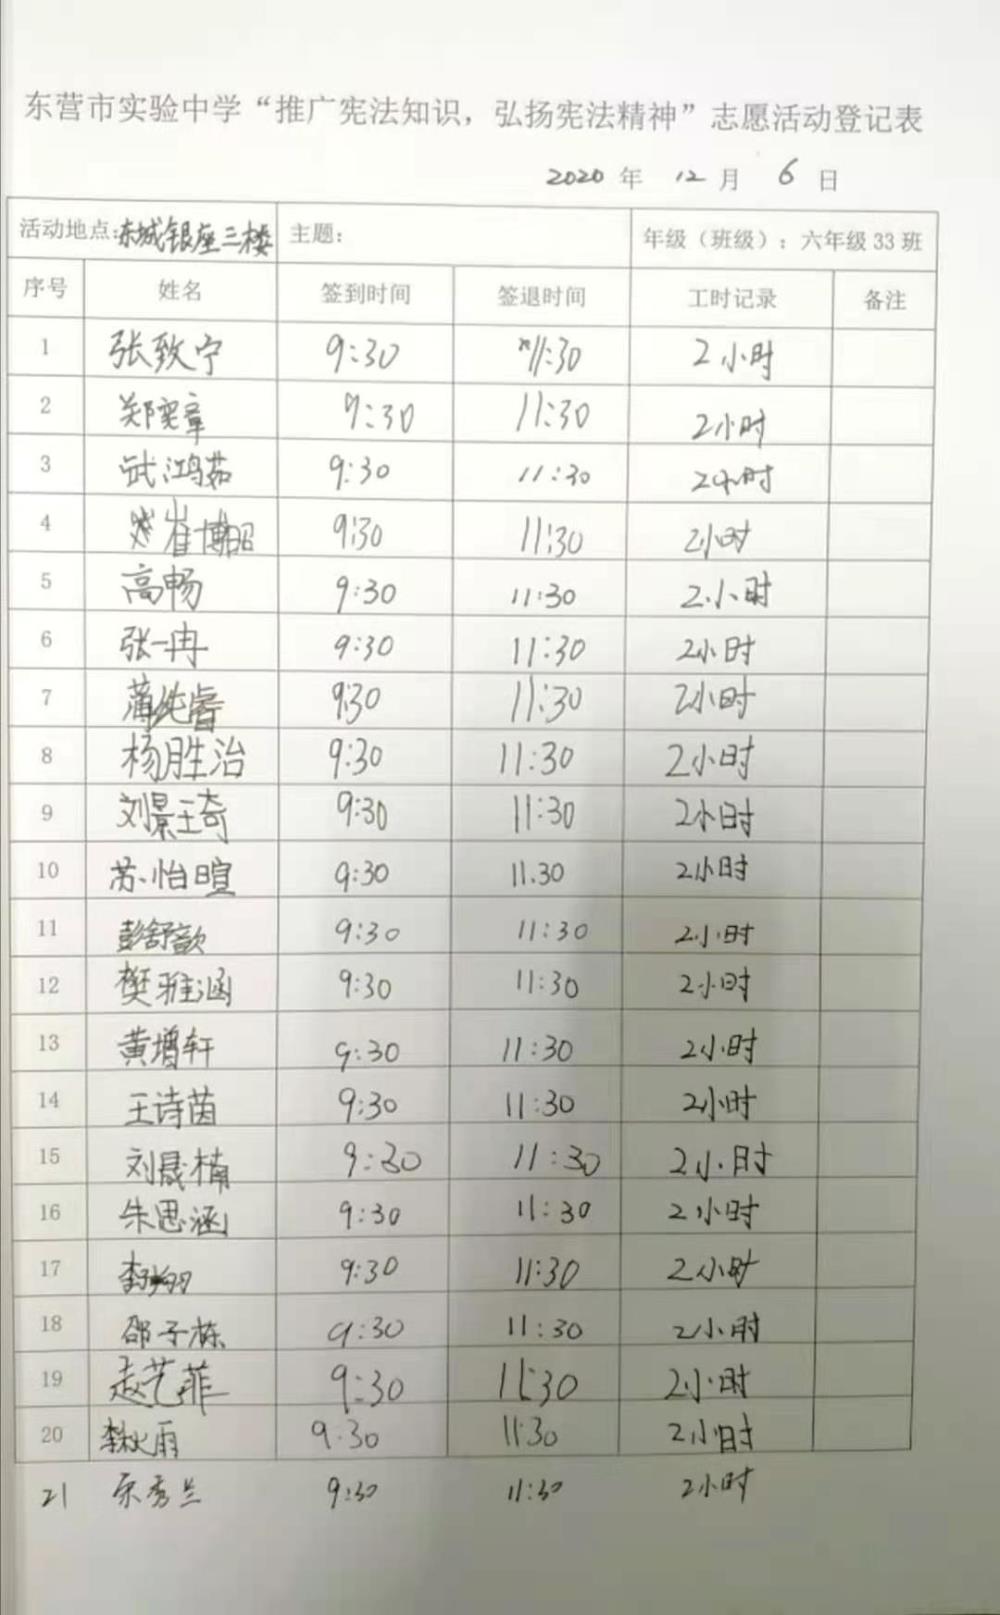 东营市实验中学“推广宪法知识，弘扬宪法精神”志愿活动登记表
2020 年 12 月 6 日
活动地点：东城银座三楼 主题： 年级（班级）：六年级 33 班
序号 姓名 签到时间 签退时间 工时记录 备注
1 张致宁 9:30 11:30 2小时
2 郑奕章 9:30 11:30 2小时
3 武鸿茹 9:30 11:30 2小时
4 崔博昭 9:30 11:30 2小时
5 高畅 9:30 11:30 2小时
6 张一冉 9:30 11:30 2小时
7 蒲纯睿 9:30 11:30 2小时
8 杨胜治 9:30 11:30 2小时
9 刘景琦 9:30 11:30 2小时
10 苏怡暄 9:30 11.30 2小时
11 彭舒歆 9:30 11:30 2小时
12 樊雅涵 9:30 11:30 2小时
13 黄增轩 9:30 11:30 2小时
14 王诗茵 9:30 11:30 2小时
15 刘晟楠 9:30 11:30 2小时
16 朱思涵 9:30 11:30 2小时
17 9:30 11:30 2小时
18 邵子栋 9:30 11:30 2小时
19 赵艺菲 9:30 11:30 2小时
20 李秋雨 9:30 11:30 2小时
21 秀兰 9:30 11:30 2小时